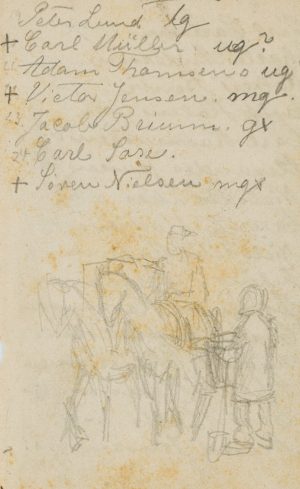 Peter Lund tg
+ Carl Müller. ug?
Adam Thomsen ug
+ Victor Jensen. mg.
Jacob Bruun. gx
Carl
+ Søren Nielsen mgx